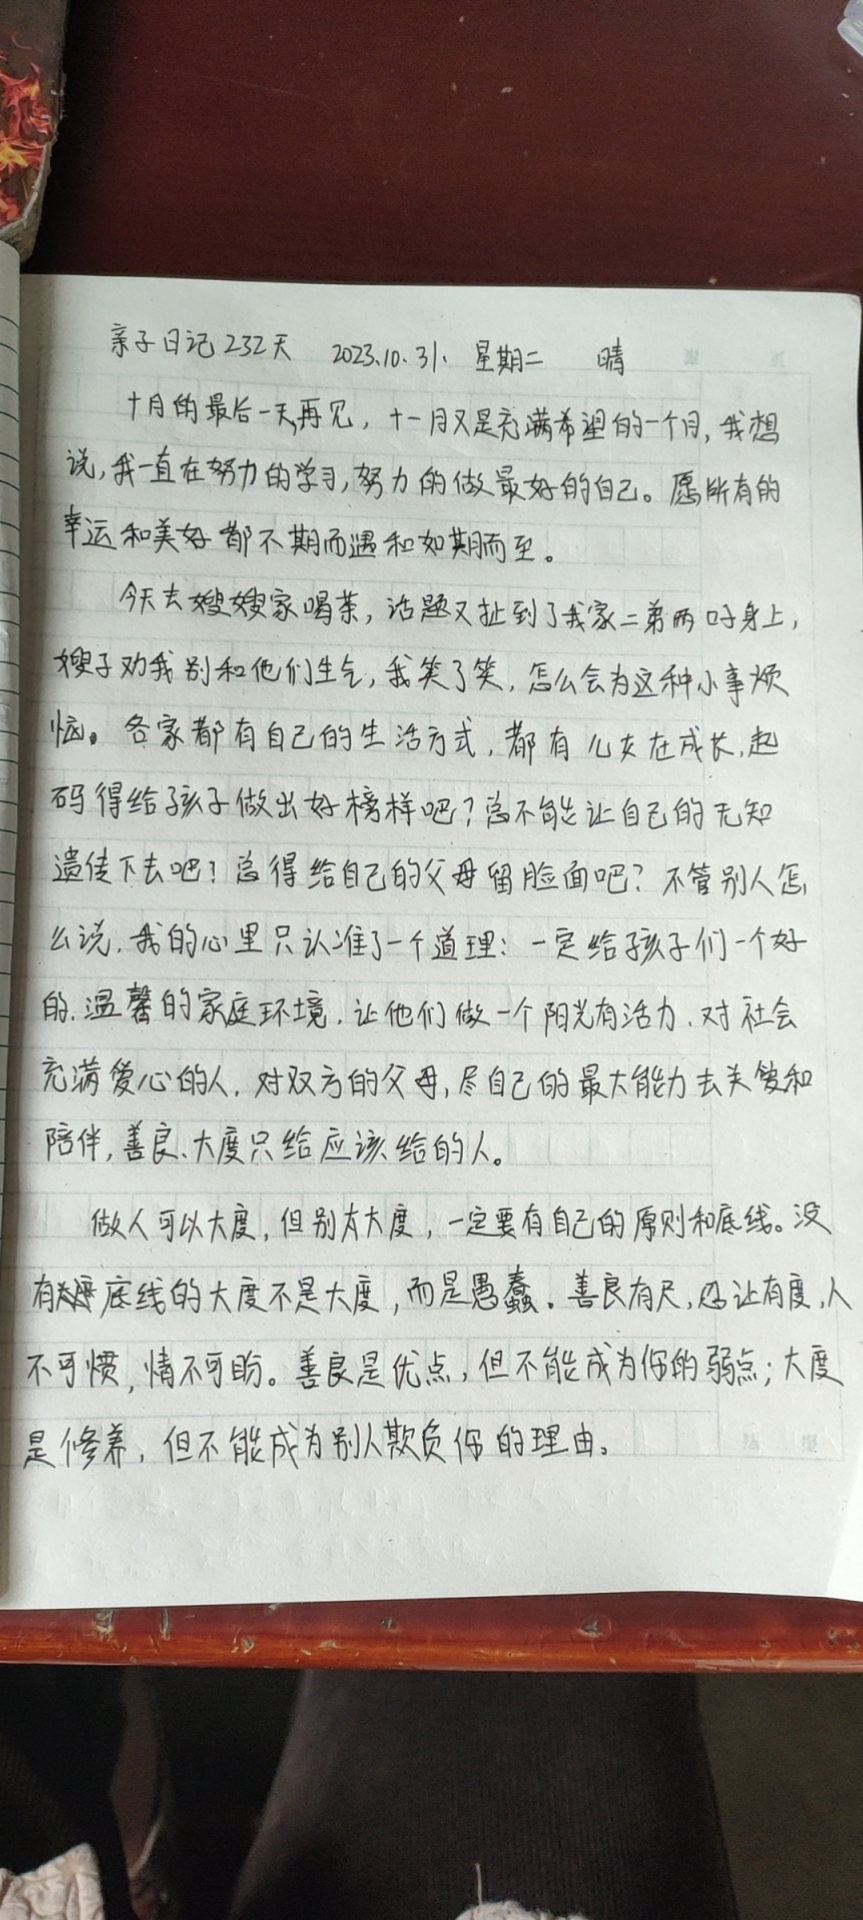 亲子日记232天 2023.10.31. 星期二 晴
十月的最后一天,再见，十一月又是充满希望的一个月,我想
说,我一直在努力的学习,努力的做最好的自己。愿所有的
幸运和美好都不期而遇和如期而至。
今天去嫂嫂家喝茶，话题又扯到了我家二弟两口子身上,
嫂子劝我别和他们生气,我笑了笑,怎么会为这种小事烦
恼。各家都有自己的生活方式,都有儿女在成长,起
码得给孩子做出好榜样吧?总不能让自己的无知
遗传下去吧?总得给自己的父母留脸面吧?不管别人怎
么说,我的心里只认准了一个道理:一定给孩子们一个好
的、温馨的家庭环境,让他们做一个阳光有活力、对社会
充满爱心的人,对双方的父母,尽自己的最大能力去关爱和
陪伴,善良、大度只给应该给的人。
做人可以大度,但别太大度,一定要有自己的原则和底线。没
有底线的大度不是大度,而是愚蠢。善良有尺,忍让有度,人
不可惯,情不可盼。善良是优点,但不能成为你的弱点;大度
是修养,但不能成为别人欺负你的理由。